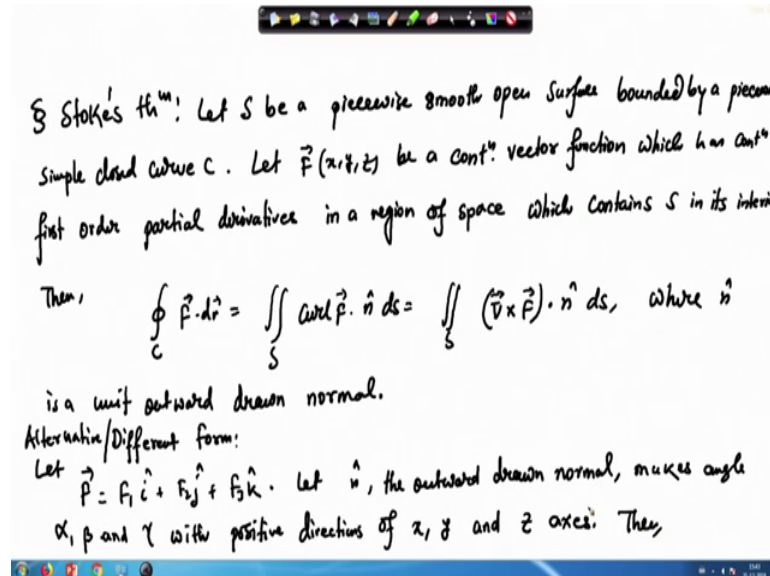 § Stoke's thm: Let S be a piecewise smooth open surface bounded by a piecew
simple closed curve C. Let F⃗(x,y,z) be a contn. vector function which has contn
first order partial derivatives in a region of space which contains S in its interi
Then, ∮_C F⃗·dr⃗ = ∬_S curl F⃗· n̂ ds = ∬_S (∇⃗×F⃗)· n̂ ds, where n̂
is a unit outward drawn normal.
Alternative/Different form:
Let F⃗ = F₁ î + F₂ ĵ + F₃ k̂. Let n̂, the outward drawn normal, makes angle
α, β and γ with positive directions of x, y and z axes. Then,